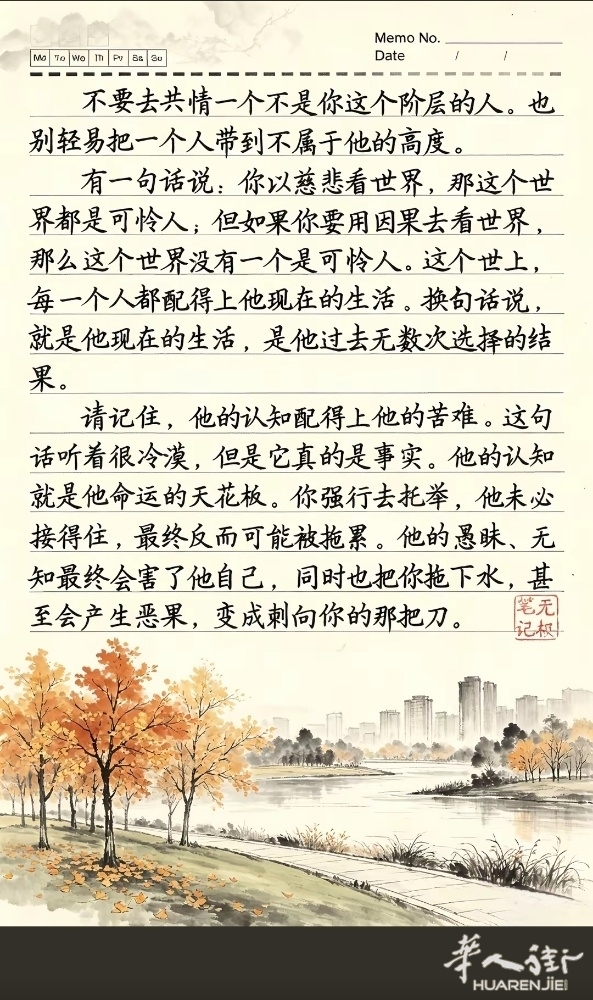 Memo No.
Mo Tu We Th Fr Sa Su
Date / /
不要去共情一个不是你这个阶层的人。也
别轻易把一个人带到不属于他的高度。
有一句话说：你以慈悲看世界，那这个世
界都是可怜人；但如果你要用因果去看世界，
那么这个世界没有一个是可怜人。这个世上，
每一个人都配得上他现在的生活。换句话说，
就是他现在的生活，是他过去无数次选择的结
果。
请记住，他的认知配得上他的苦难。这句
话听着很冷漠，但是它真的是事实。他的认知
就是他命运的天花板。你强行去托举，他未必
接得住，最终反而可能被拖累。他的愚昧、无
知最终会害了他自己，同时也把你拖下水，甚
至会产生恶果，变成刺向你的那把刀。
无极
笔记
華人街
HUARENJIE